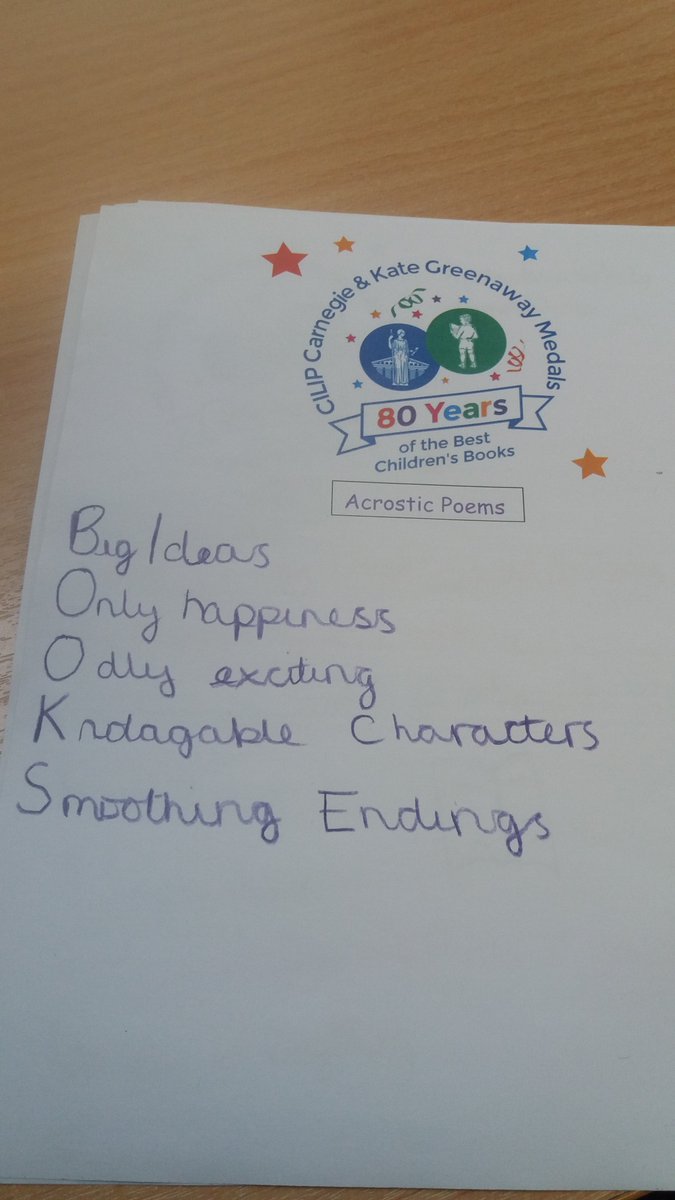 CILIP Carnegie & Kate Greenaway Medals
80 Years
of the Best
Children's Books
Acrostic Poems
Big Ideas
Only happiness
Odly exciting
Knolagable Characters
Smoothing Endings